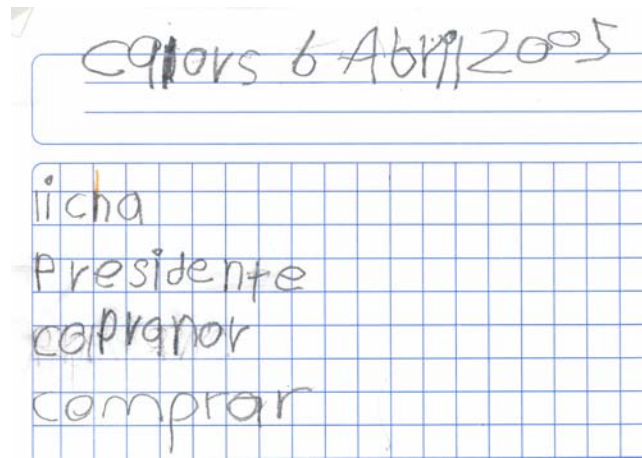 calors 6 Abril 2005
licha
Presidente
copranor
comprar